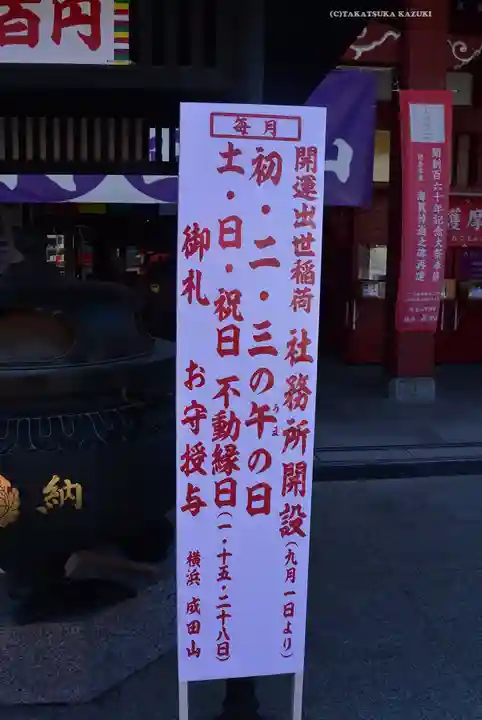 (C)TAKATSUKA KAZUKI
百円
毎月
開運出世稲荷 社務所開設(九月一日より)
初・二・三の午の日
うま
土・日・祝日 不動縁日(一・十五・二十八日)
御札 お守授与
横浜 成田山
開創百六十年記念大祭奉修
護摩
納
山